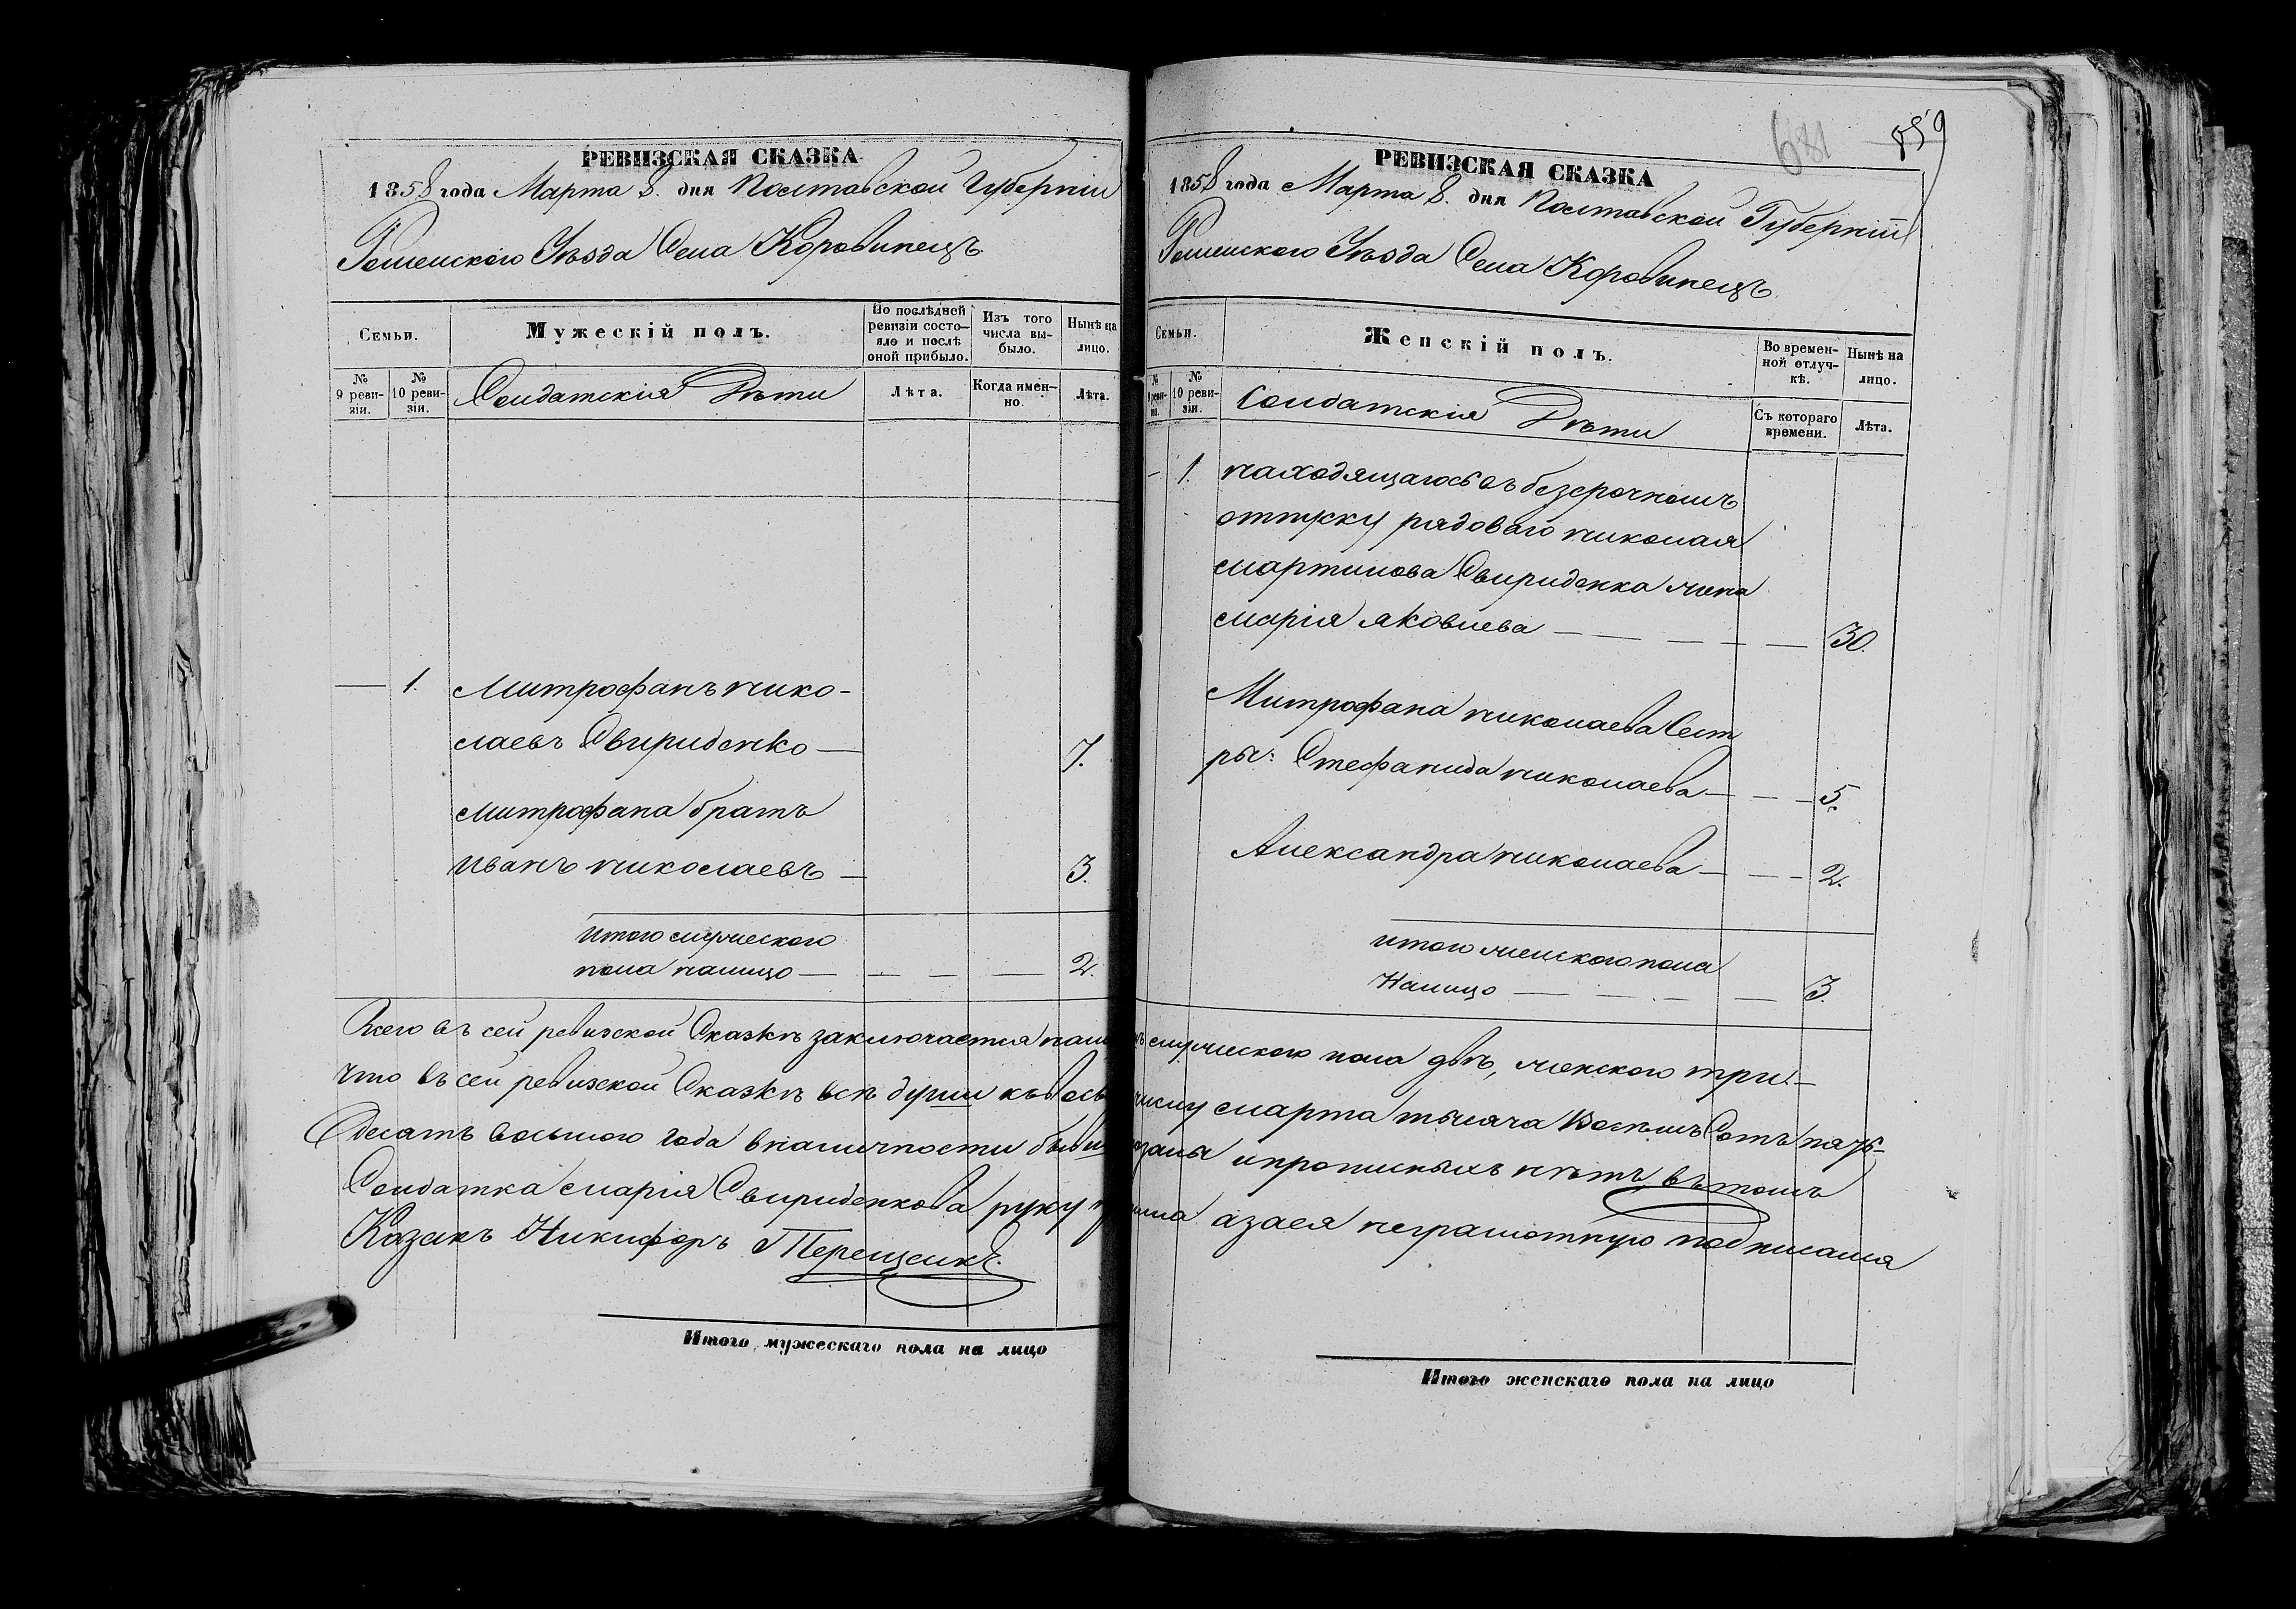 РЕВИЗСКАЯ СКАЗКА
1858 года Марта 8. дня Полтавской Губерніи
Роменского Уѣзда Села Коровинецъ
Семьи.
Мужескій полъ.
По послѣдней ревизіи состояло и послѣ оной прибыло.
Изъ того числа выбыло.
Нынѣ на лицо.
№ 9 ревизіи.
№ 10 ревизіи.
Солдатскія Дѣти
Лѣта.
Когда именно.
Лѣта.
— 1. Митрофанъ Нико-
лаевъ Свириденко — 7.
Митрофана братъ
Иванъ Николаевъ — 3.
Итого мужеского
пола налицо — — — — 2.
681
859
РЕВИЗСКАЯ СКАЗКА
1858 года Марта 8. дня Полтавской Губерніи
Роменского Уѣзда Села Коровинецъ
Семьи.
Женскій полъ.
Во временной отлучкѣ.
Нынѣ на лицо.
№ 9 ревизіи.
№ 10 ревизіи.
Солдатскія Дѣти
Съ котораго времени.
Лѣта.
— 1. находящагось въ безсрочномъ
отпуску рядоваго Николая
Мартинова Свириденка жена
Марія Яковлева — — — — — 30.
Митрофана Николаева Сест
ры: Стефанида Николаева — — — 5.
Александра Николаева — — — 2.
итого женского пола
Налицо — — — — — 3.
Всего въ сей ревизской Сказкѣ заключается мужеского пола двѣ, женского три. —
Что въ сей ревизской Сказкѣ всѣ души къ марта тысяча Восемь Сотъ пять-
Десятъ восьмого года вналичности и прописныхъ нѣтъ, въ томъ
Солдатка Марія Свириденкова руку а за ея неграмотную подписался
Козакъ Никифоръ
Итого мужескаго пола на лицо
Итого женскаго пола на лицо